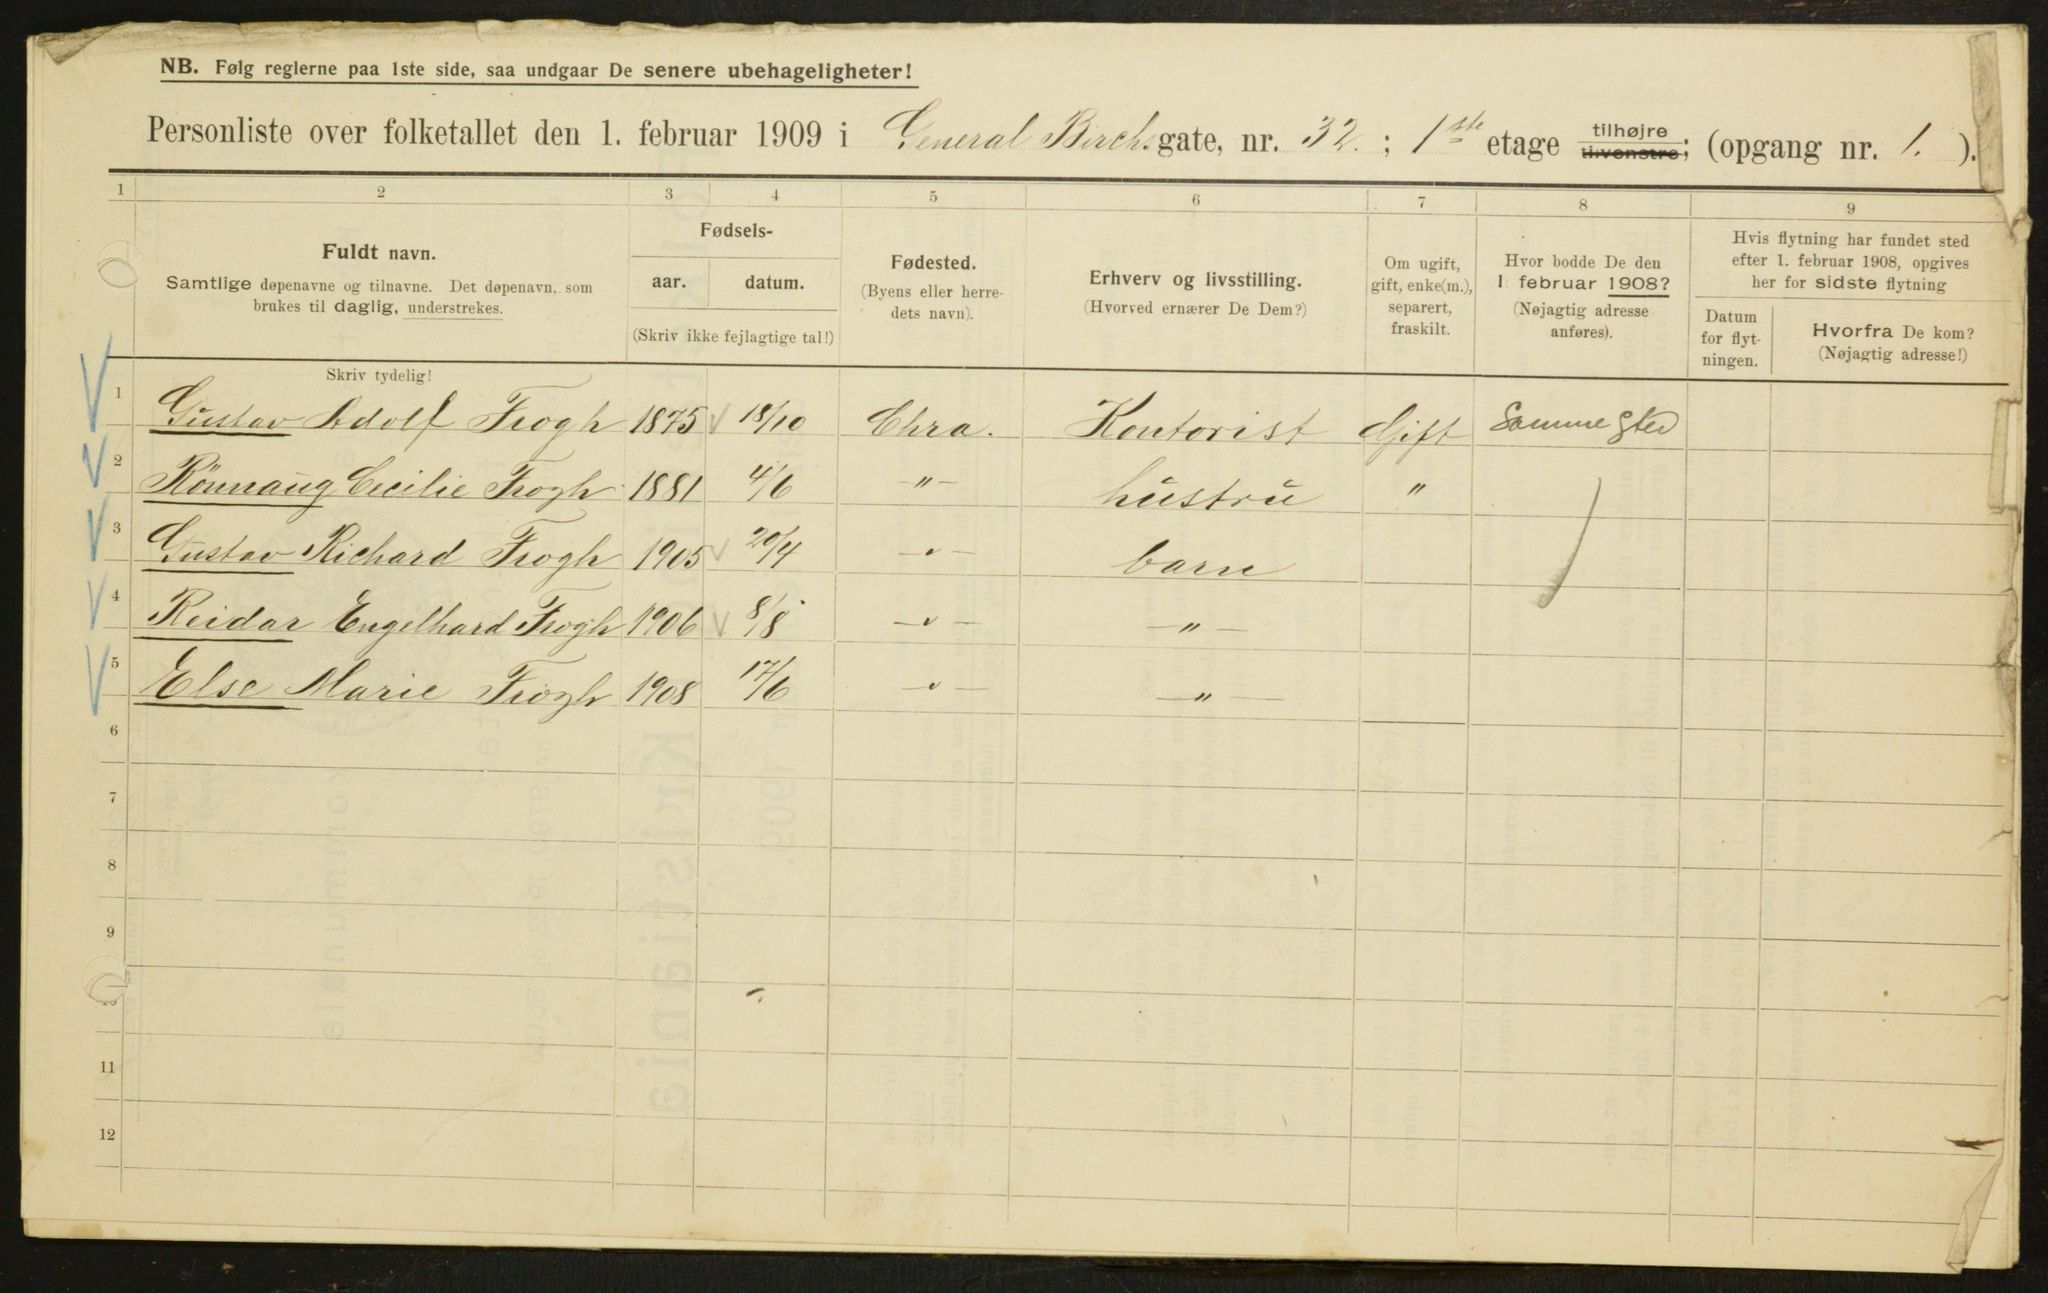 NB. Følg reglerne paa 1ste side, saa undgaar De senere ubehageligheter!
Personliste over folketallet den 1. februar 1909 i General Birchsgate, nr. 32. ; 1ste etage tilhøjre tilvenstre; (opgang nr. 1. ).
1 2 3 4 5 6 7 8 9
Fuldt navn.
Samtlige døpenavne og tilnavne. Det døpenavn, som
brukes til daglig, understrekes.
Fødsels-
aar. datum.
(Skriv ikke fejlagtige tal!)
Fødested.
(Byens eller herre-
dets navn).
Erhverv og livsstilling.
(Hvorved ernærer De Dem?)
Om ugift,
gift, enke(m.),
separert,
fraskilt.
Hvor bodde De den
1. februar 1908?
(Nøjagtig adresse
anføres).
Hvis flytning har fundet sted
efter 1. februar 1908, opgives
her for sidste flytning
Datum
for flyt-
ningen.
Hvorfra De kom?
(Nøjagtig adresse!)
Skriv tydelig!
1 Gustav Adolf Frogh 1875 18/10 Chra. Kontorist Gift Samme sted
2 Rönnaug Cecilie Frogh 1881 4/6 -"- hustru "
3 Gustav Richard Frogh 1905 20/4 -"- barn
4 Reidar Engelhard Frogh 1906 8/8 -"- -"-
5 Else Marie Frogh 1908 17/6 -"- -"-
6
7
8
9
10
11
12